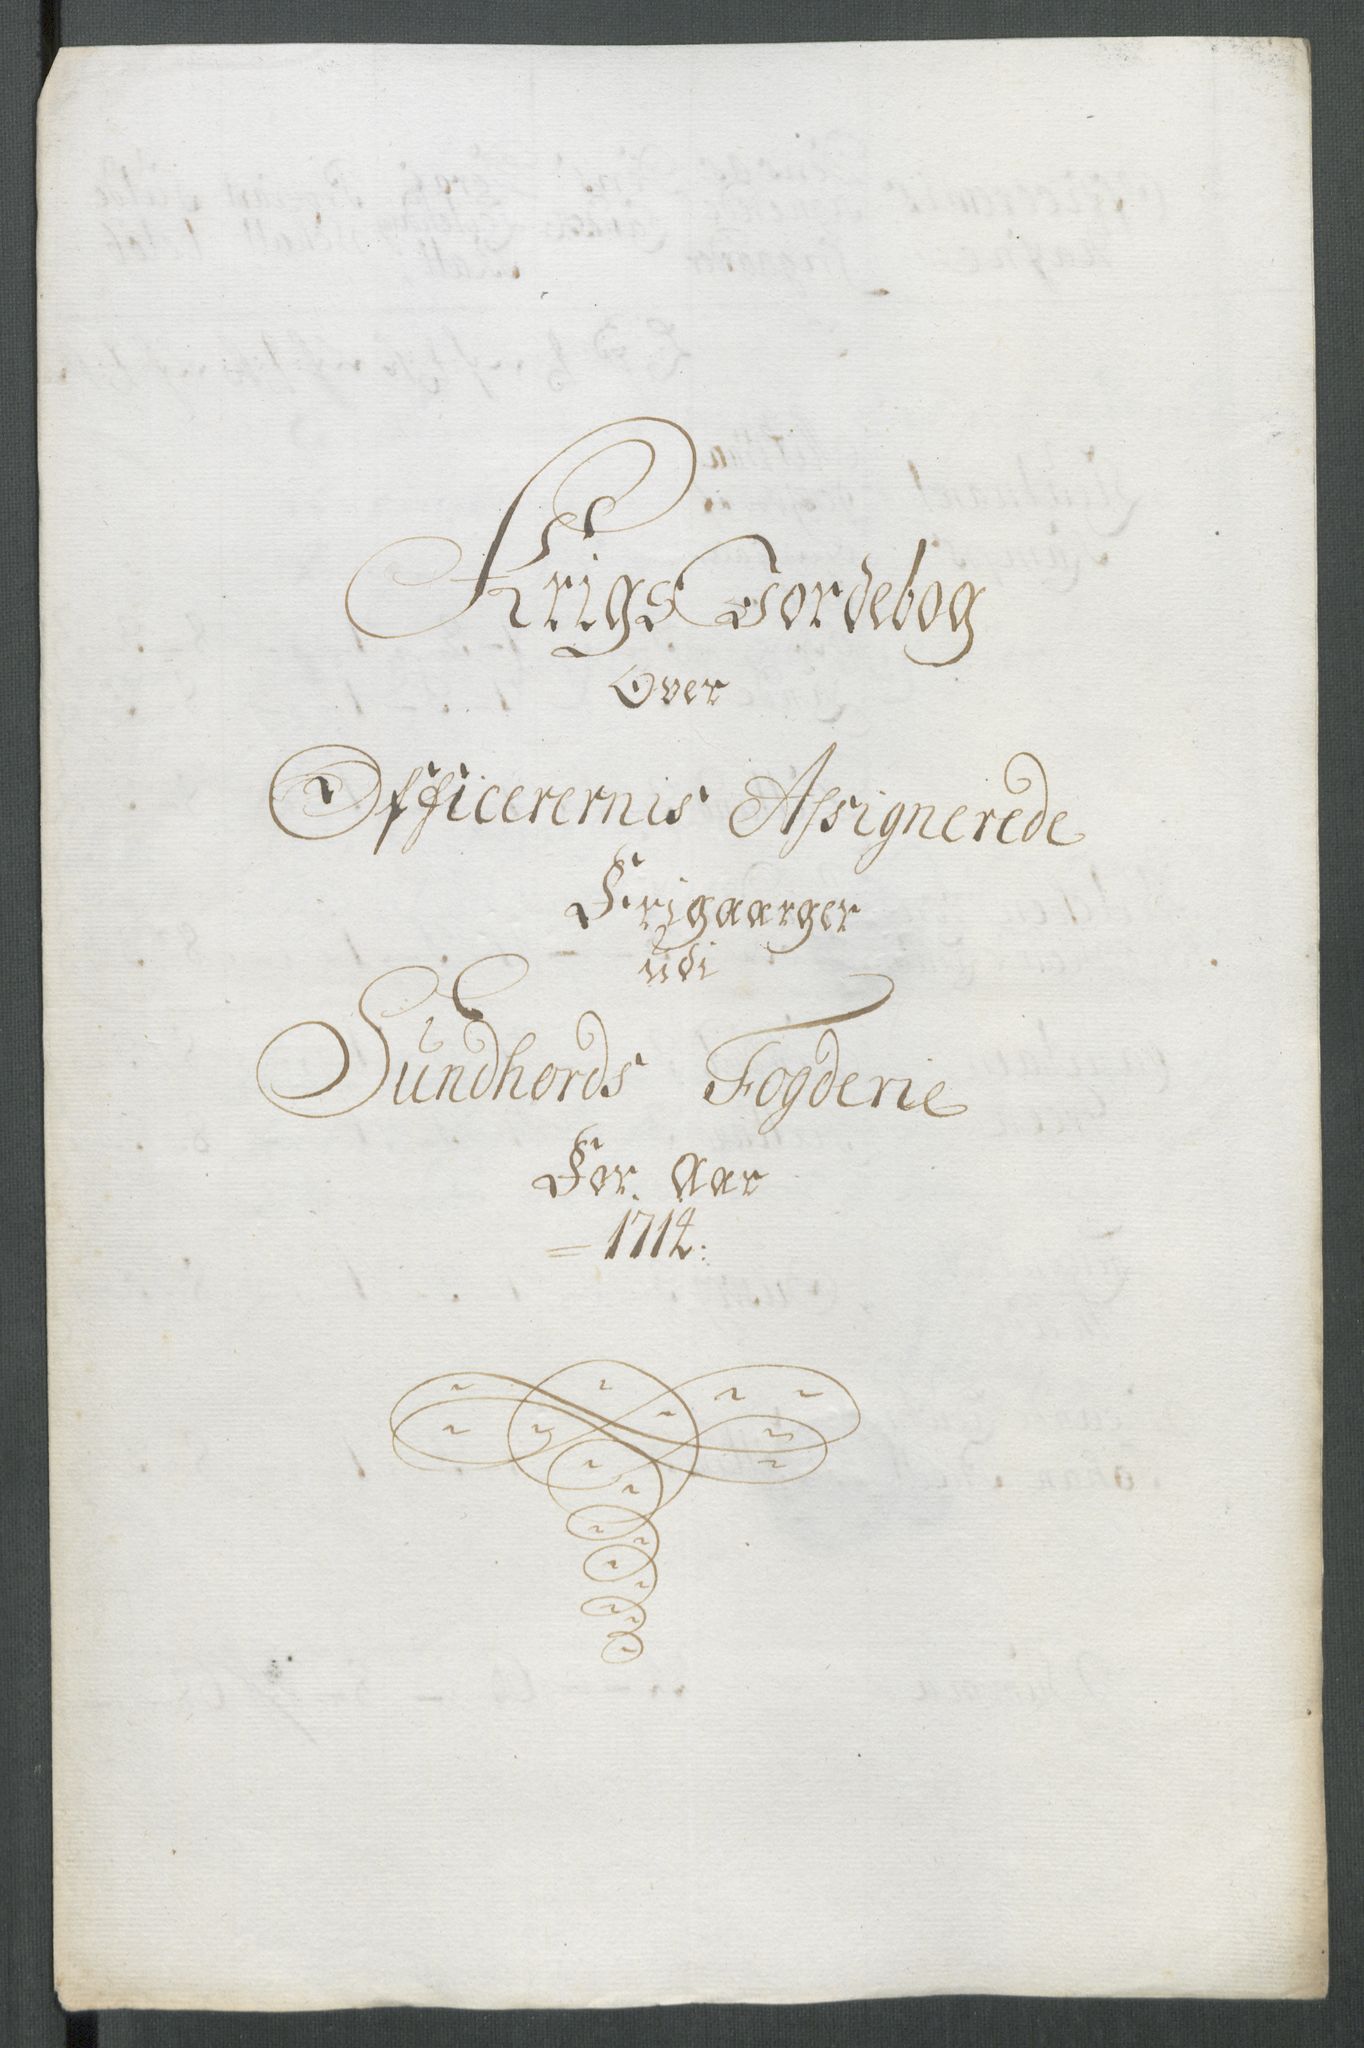 Krigs Jordebog
Over
Officerernis Assignerede
Frigaarger
udi
Sundhords Fogderie
For. Aar
1714.